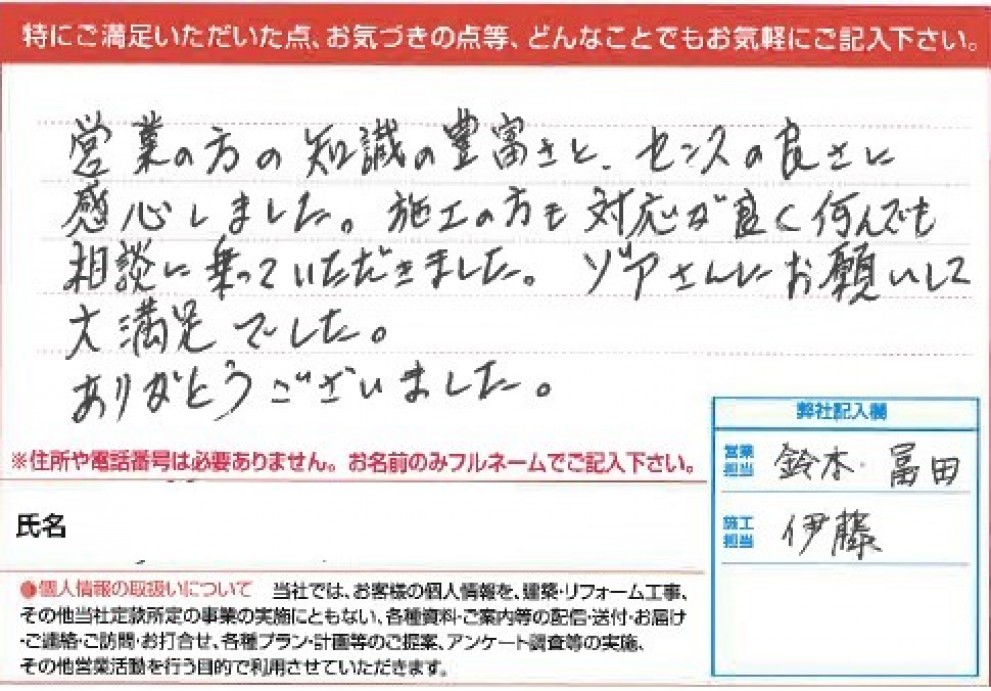 特にご満足いただいた点、お気づきの点等、どんなことでもお気軽にご記入下さい。
営業の方の知識の豊富さと、センスの良さに
感心しました。施工の方も対応が良く何んでも
相談に乗っていただきました。ゾアさんにお願いして
大満足でした。
ありがとうございました。
※住所や電話番号は必要ありません。お名前のみフルネームでご記入下さい。
氏名
弊社記入欄
営業担当 鈴木・冨田
施工担当 伊藤
●個人情報の取扱いについて 当社では、お客様の個人情報を、建築・リフォーム工事、
その他当社定款所定の事業の実施にともない、各種資料・ご案内等の配信・送付・お届け
・ご連絡・ご訪問・お打合せ、各種プラン・計画等のご提案、アンケート調査等の実施、
その他営業活動を行う目的で利用させていただきます。